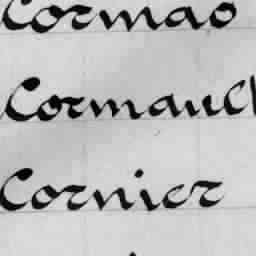 Cormao
Cormaucl
Cornier